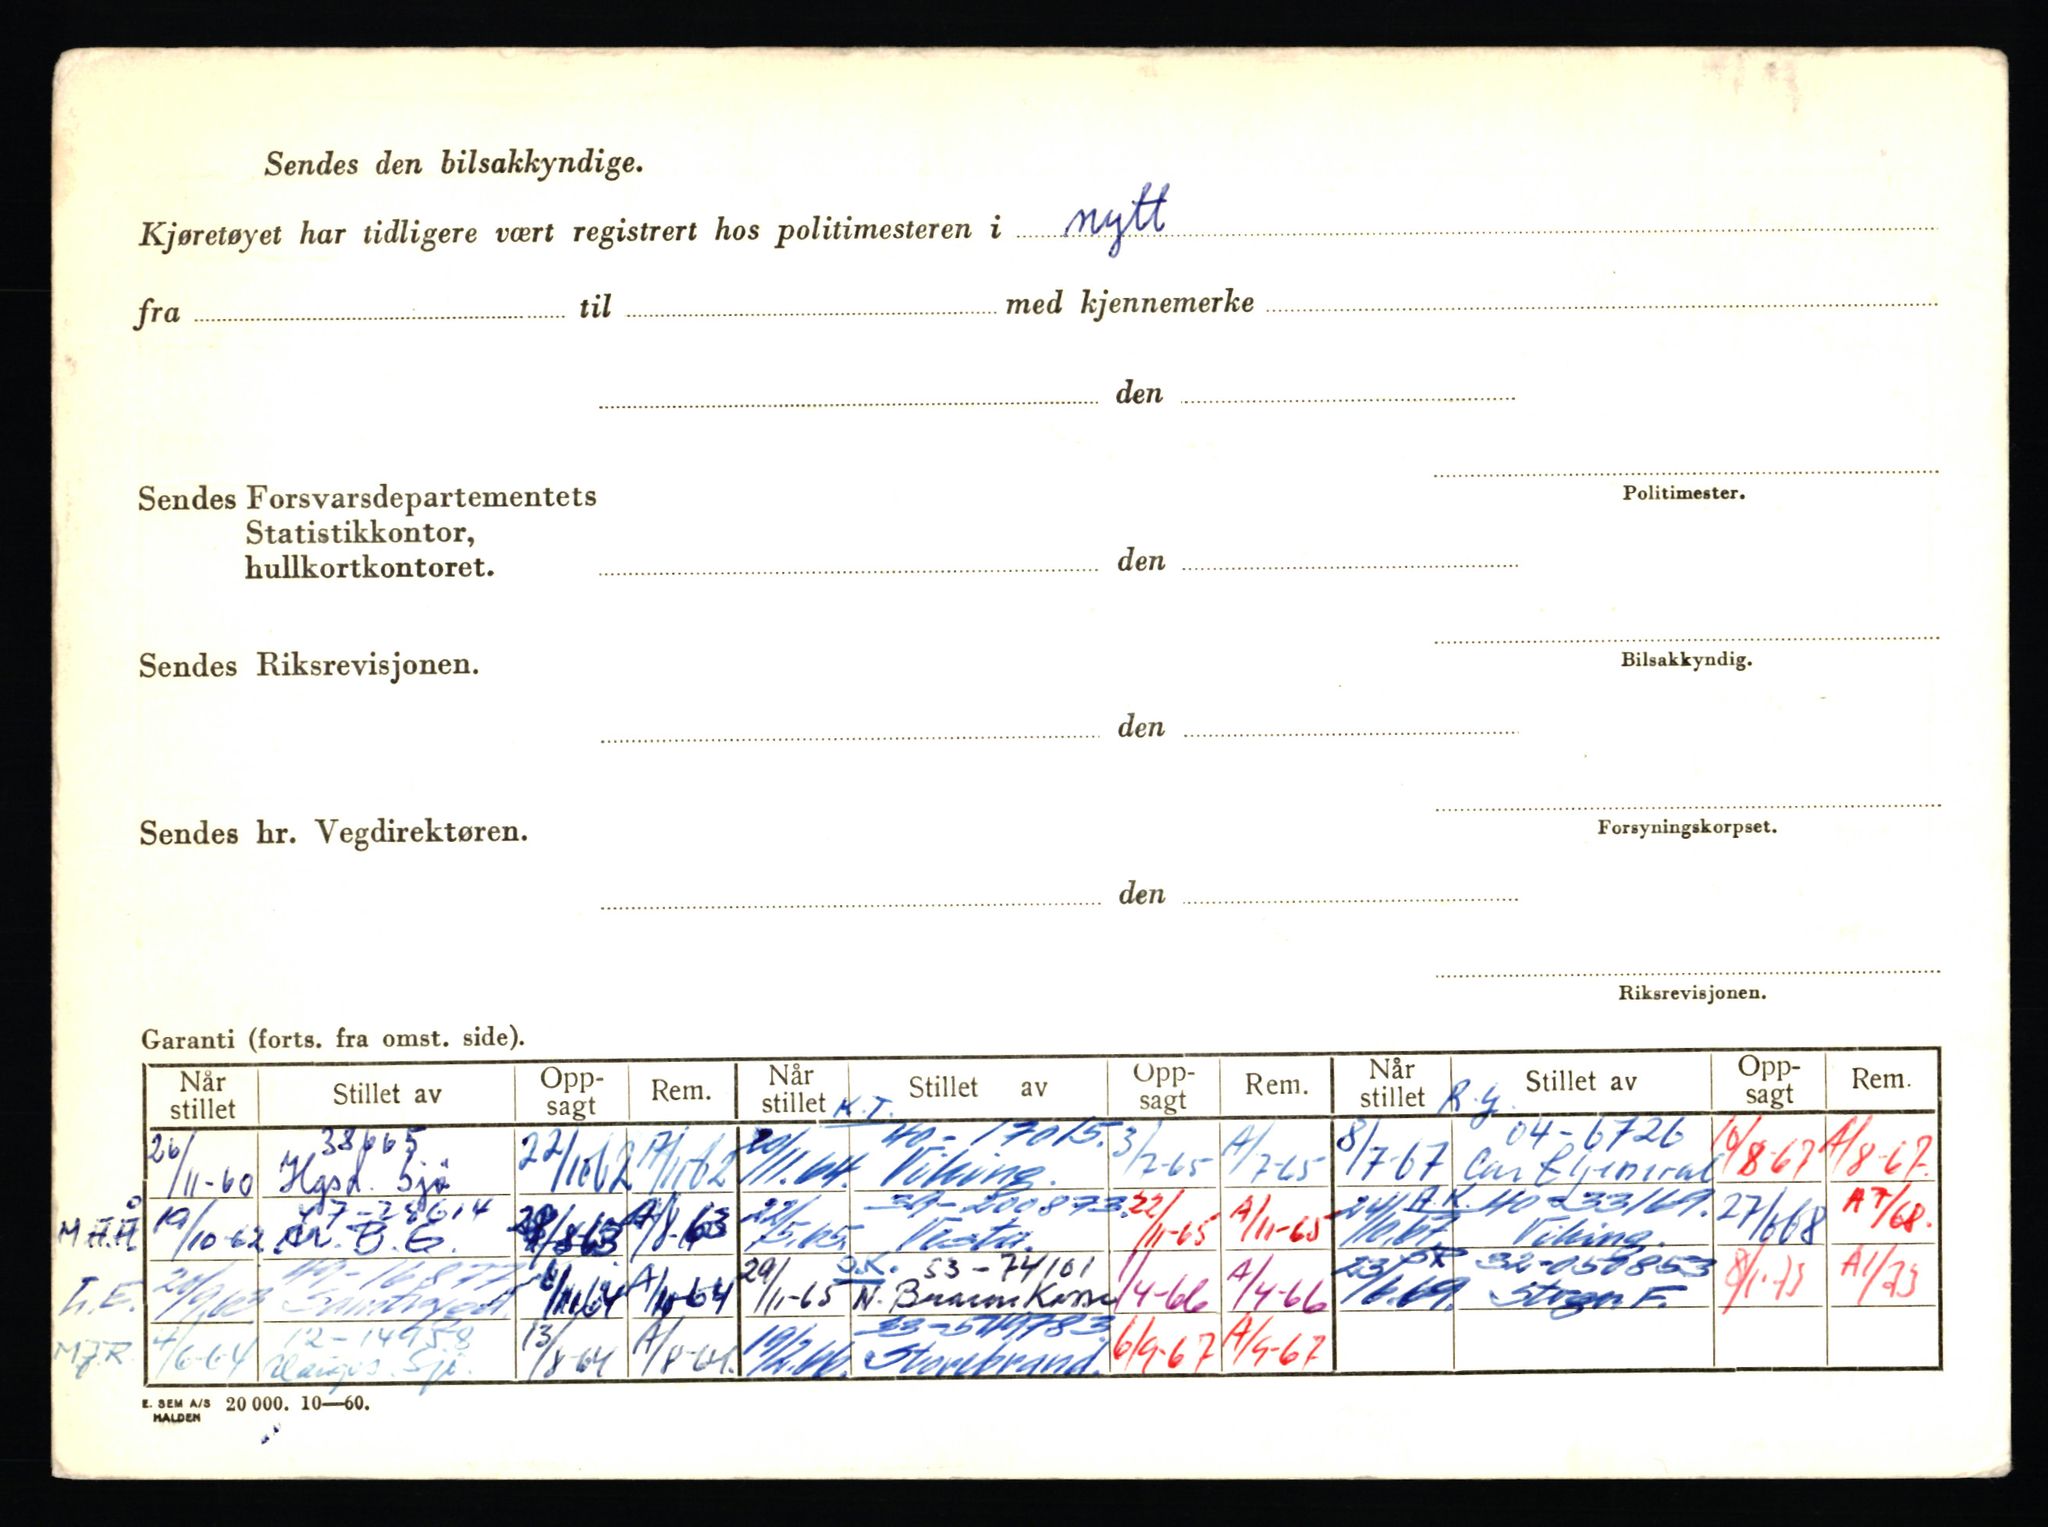 Sendes den bilsakkyndige.
Kjøretøyet har tidligere vært registrert hos politimesteren i nytt
fra til med kjennemerke
den
Politimester.
Sendes Forsvarsdepartementets
Statistikkontor,
hullkortkontoret.
den
Bilsakkyndig.
Sendes Riksrevisjonen.
den
Forsyningskorpset.
Sendes hr. Vegdirektøren.
den
Riksrevisjonen.
Garanti (forts. fra omst. side).
Når stillet Stillet av Opp-sagt Rem. Når stillet Stillet av Opp-sagt Rem. Når stillet Stillet av Opp-sagt Rem.
26/11-60 38665 Hgsd. Sjø 22/11-62 A/11-62 K.T. 20/11.64. 40-17015. Viking. 3/7-65 A/7-65 8/7-67 R.G. 04-6726 Car & General 10/8-67 A/8-67.
19/10-62 47-28614 8-63 A/8-63 22/5.65 39-200873. Vesta. 22/11-65 A/11-65 A.K. 40-233169. Viking. 27/6-68 A7/68.
L.E. 49-16877 A/10-64 29/11-65 O.K. 53-74101 N. Bearer Kasse 1/4-66 A/4-66 23/6.69. 32-050853 8/1.73 A1/73
4/6-64 12-14958 Sjø. 13/8-64 A/8-64. 19/2.66. 33-549783. Storebrand. 6/9-67 A/9-67
E. SEM A/S
HALDEN
20 000. 10—60.